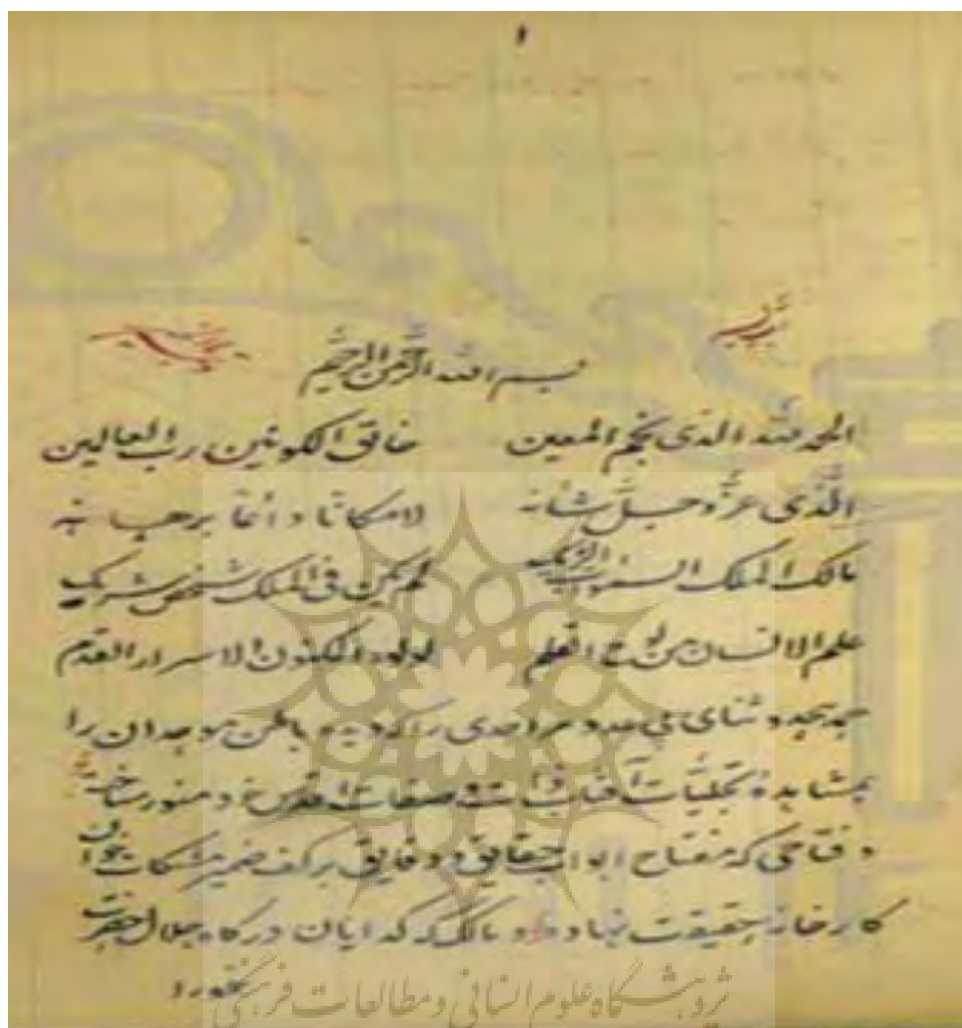 ۱
بسم الله الرّحمن الرحیم
الحمد لله الذی نجم المعین خالق الکونین رب العالمین
الّذی عزّ و جلّ شانه لامکانا دائما برهانه
مالک الملک لم یکن فی الملک شخص شریک
علم الانسان من لوح القلم لولو المکنون لاسرار القدم
حمد بیحد و ثنای بی عدد مر احدی را که دیده باطن موحدان را
بمشاهدهٔ تجلیّات آفتاب ذات و صفات اقدس خود منور ساخته
و فتاحی که مفتاح ابواب حقایق و دقایق بر کف ضمیر مشکات
کارخانه حقیقت نهاده و مالکی که گدایان درگاه جلال حضرت
خود را
پژوهشگاه علوم انسانی و مطالعات فرهنگی